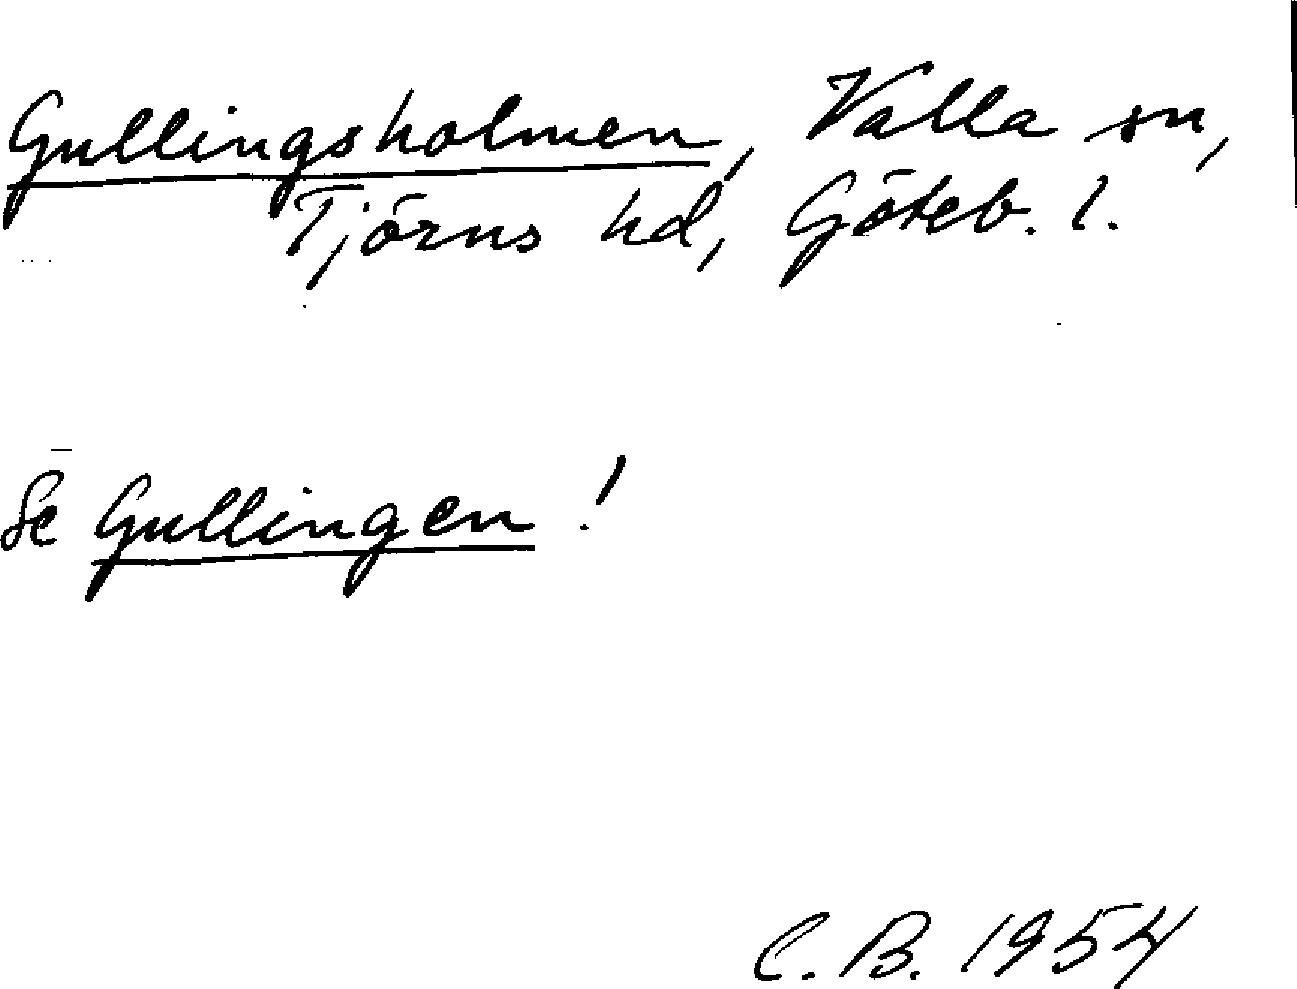 Gullingsholmen, Valla sn,
Tjörns hd, Göteb. l.
Se Gullingen!
C.B. 1954